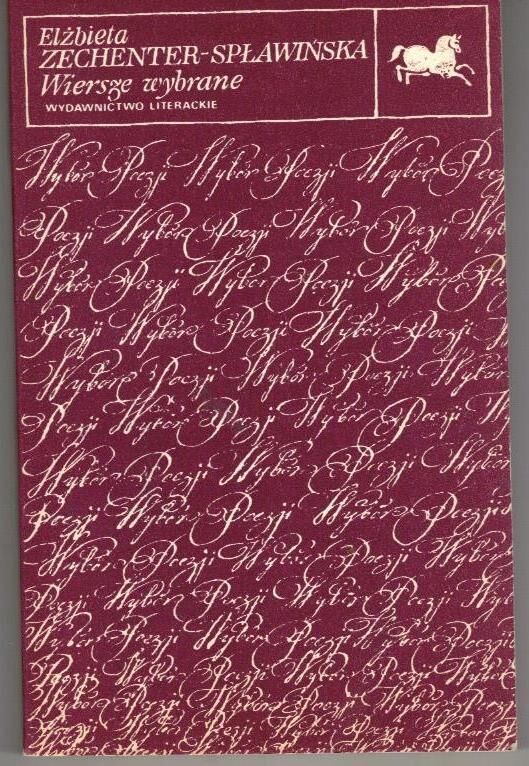 Elżbieta
ZECHENTER-SPŁAWIŃSKA
Wiersze wybrane
WYDAWNICTWO LITERACKIE
Wybór Poezji Wybór Poezji Wybór Poezji
Poezji Wybór Poezji Wybór Poezji Wyb
Wybór Poezji Wybór Poezji Wybór Poe
Poezji Wybór Poezji Wybór Poezji W
Wybór Poezji Wybór Poezji Wybór
Poezji Wybór Poezji Wybór Poezji
Wybór Poezji Wybór Poezji Wybór
Poezji Wybór Poezji Wybór Poezji
Wybór Poezji Wybór Poezji Wybór
Poezji Wybór Poezji Wybór Poezji Wy
Wybór Poezji Wybór Poezji Wybór Poezji
Poezji Wybór Poezji Wybór Poezji Wybór
Wybór Poezji Wybór Poezji Wybór Poezji
Poezji Wybór Poezji Wybór Poezji Wybór